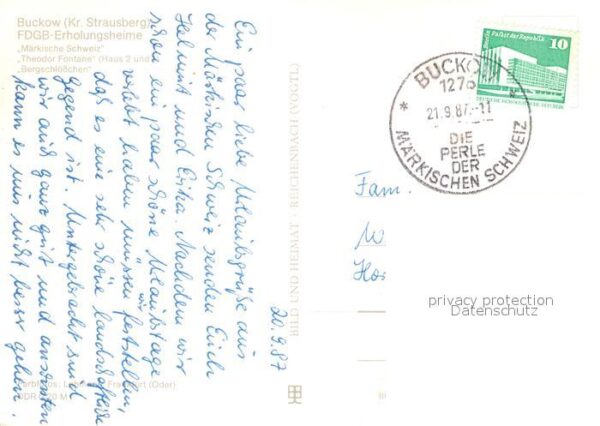 Buckow (Kr. Strausberg)
FDGB-Erholungsheime
„Märkische Schweiz"
„Theodor Fontane" (Haus 2 und
„Bergschlößchen"
Ein paar liebe Urlaubsgrüße aus
der Märkischen Schweiz senden Euch
Helmut und Erika. Nachdem wir
schon ein paar schöne Urlaubstage
verlebt haben, müssen wir feststellen,
daß es eine sehr schöne landschaftliche
Gegend ist. Untergebracht sind
wir auch ganz gut und ansonsten
kann es uns nicht besser gehen.
20.9.87
Farbfotos: Frankfurt (Oder)
DDR 20 M
BILD UND HEIMAT · REICHENBACH (VOGTL)
Berlin Palast der Republik
10
DEUTSCHE DEMOKRATISCHE REPUBLIK
BUCKOW
1276
21.9.87.-11
DIE
PERLE
DER
MÄRKISCHEN SCHWEIZ
Fam.
privacy protection
Datenschutz